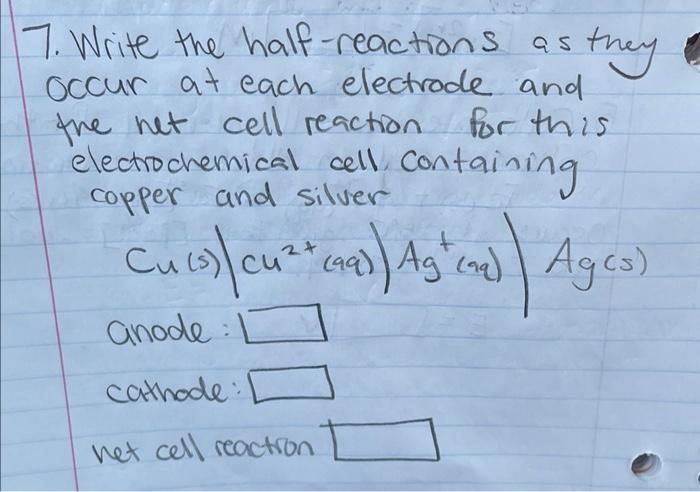 7. Write the half-reactions as they
occur at each electrode and
the net cell reaction for this
electrochemical cell, containing
copper and silver
Cu(s)|cu²⁺(aq)|Ag⁺(aq)|Ag(s)
anode:
cathode:
net cell reaction